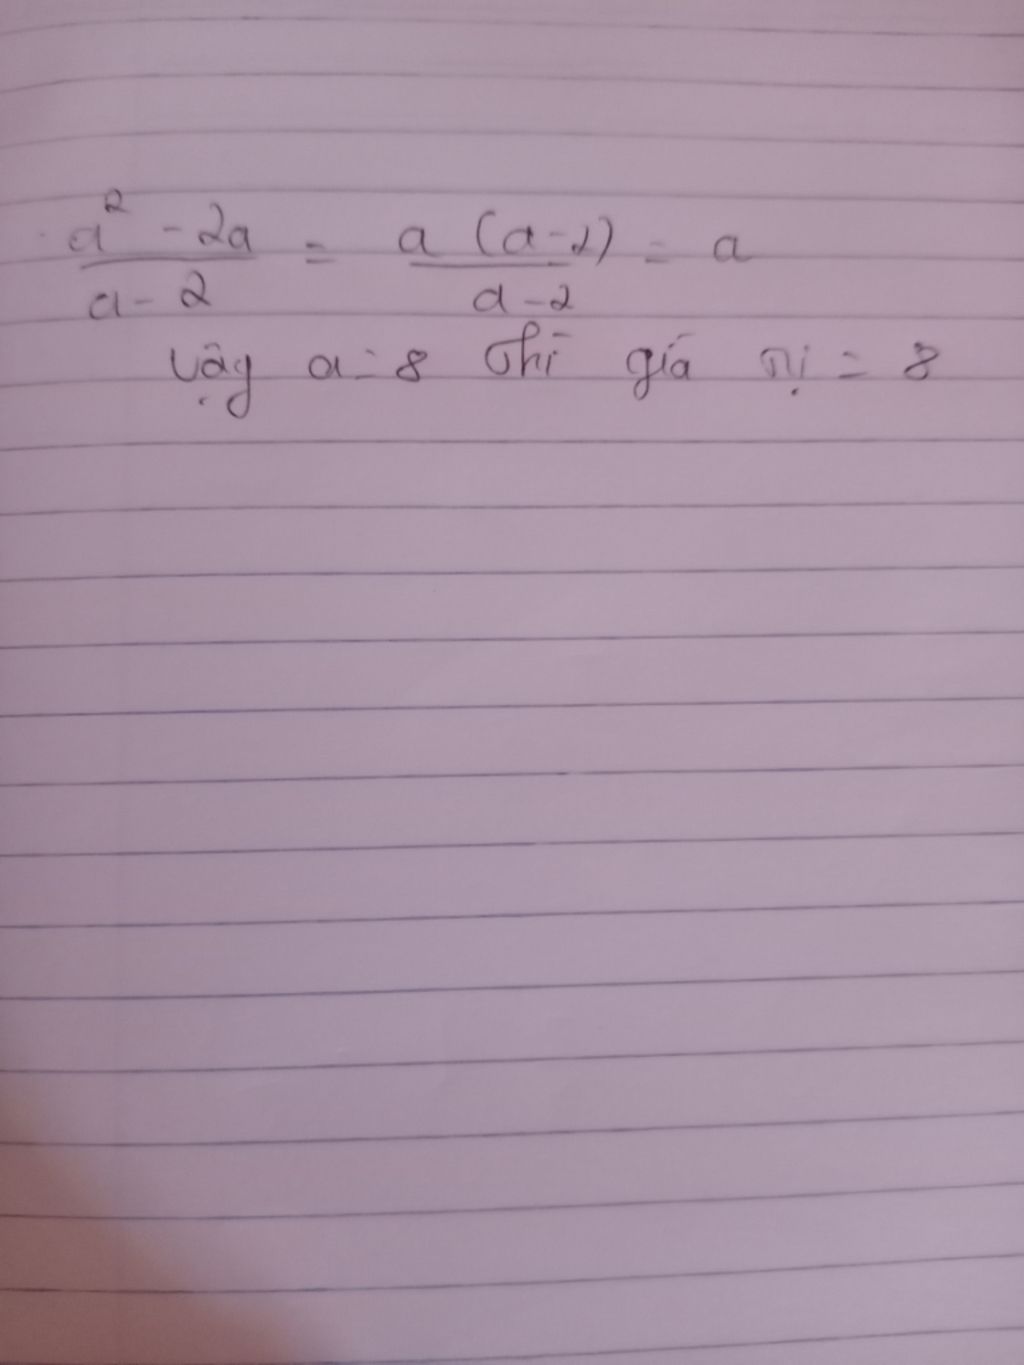 a² - 2a / a - 2 = a (a - 2) / a - 2 = a
Vậy a = 8 thì giá trị = 8